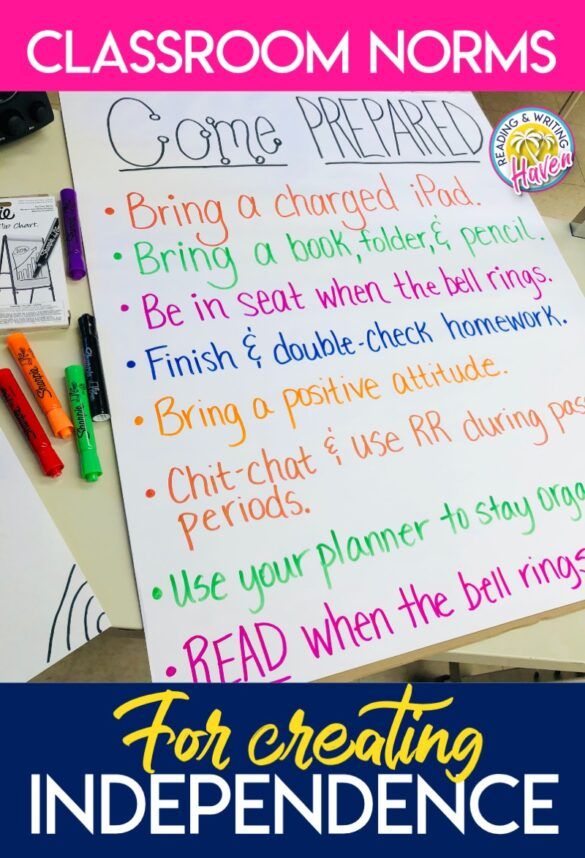 CLASSROOM NORMS
Come PREPARED
READING & WRITING
Haven
• Bring a charged iPad.
• Bring a book, folder, & pencil.
• Be in seat when the bell rings.
• Finish & double-check homework.
• Bring a positive attitude.
• Chit-chat & use RR during
periods.
• Use your planner to stay
• READ when the bell rings
For creating
INDEPENDENCE